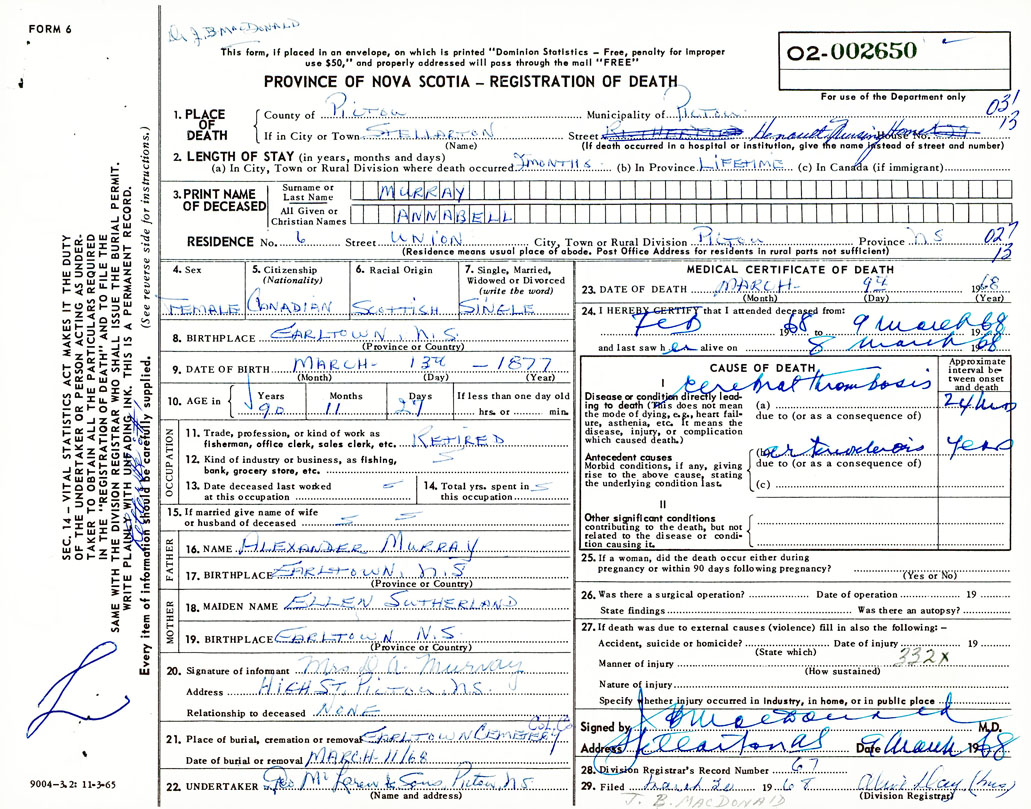 FORM 6
Dr J. B MacDonald
This form, if placed in an envelope, on which is printed "Dominion Statistics – Free, penalty for improper
use $50," and properly addressed will pass through the mail "FREE"
PROVINCE OF NOVA SCOTIA – REGISTRATION OF DEATH
02-002650
For use of the Department only
031
13
1. PLACE OF DEATH
County of Pictou Municipality of Pictou
If in City or Town STELLARTON Street Nursing Home House No.
(Name) (If death occurred in a hospital or institution, give the name instead of street and number)
2. LENGTH OF STAY (in years, months and days)
(a) In City, Town or Rural Division where death occurred 2 MONTHS (b) In Province LIFETIME (c) In Canada (if immigrant)
3. PRINT NAME OF DECEASED
Surname or Last Name MURRAY
All Given or Christian Names ANNABELL
RESIDENCE No. 6 Street UNION City, Town or Rural Division Pictou Province NS
027
13
(Residence means usual place of abode. Post Office Address for residents in rural parts not sufficient)
4. Sex
FEMALE
5. Citizenship (Nationality)
CANADIAN
6. Racial Origin
SCOTTISH
7. Single, Married, Widowed or Divorced (write the word)
SINGLE
8. BIRTHPLACE EARLTOWN, N.S.
(Province or Country)
9. DATE OF BIRTH MARCH - 13th - 1877
(Month) (Day) (Year)
10. AGE in Years Months Days If less than one day old
90 11 27 hrs. or min.
OCCUPATION
11. Trade, profession, or kind of work as
fisherman, office clerk, sales clerk, etc. RETIRED
12. Kind of industry or business, as fishing,
bank, grocery store, etc.
13. Date deceased last worked
at this occupation
14. Total yrs. spent in
this occupation
15. If married give name of wife
or husband of deceased
FATHER
16. NAME ALEXANDER MURRAY
17. BIRTHPLACE EARLTOWN, N.S
(Province or Country)
MOTHER
18. MAIDEN NAME ELLEN SUTHERLAND
19. BIRTHPLACE EARLTOWN N.S.
(Province or Country)
20. Signature of informant Mrs D. A. Murray
Address HIGH ST. PICTOU, N.S.
Relationship to deceased NONE
21. Place of burial, cremation or removal EARLTOWN CEMETERY Col. Co
Date of burial or removal MARCH 11/68
22. UNDERTAKER Geo McLaren & Sons Pictou, N.S.
(Name and address)
MEDICAL CERTIFICATE OF DEATH
23. DATE OF DEATH MARCH - 9th 1968
(Month) (Day) (Year)
24. I HEREBY CERTIFY that I attended deceased from:
Feb 1968 to 9 March 1968
and last saw her alive on 8 March 1968
CAUSE OF DEATH
Approximate interval between onset and death
I
Disease or condition directly leading to death (This does not mean the mode of dying, e.g., heart failure, asthenia, etc. It means the disease, injury, or complication which caused death.)
(a) cerebral thrombosis 24 hrs
due to (or as a consequence of)
Antecedent causes
Morbid conditions, if any, giving rise to the above cause, stating the underlying condition last.
(b) Years
due to (or as a consequence of)
(c)
II
Other significant conditions
contributing to the death, but not related to the disease or condition causing it.
25. If a woman, did the death occur either during
pregnancy or within 90 days following pregnancy?
(Yes or No)
26. Was there a surgical operation? Date of operation 19
State findings Was there an autopsy?
27. If death was due to external causes (violence) fill in also the following: –
Accident, suicide or homicide? Date of injury 19
(State which) 332X
Manner of injury
(How sustained)
Nature of injury
Specify whether injury occurred in industry, in home, or in public place
Signed by J B MacDonald M.D.
Address Stellarton N.S. Date 9 March 1968
28. Division Registrar's Record Number 67
29. Filed March 20 1968
(Division Registrar)
J. B. MACDONALD
SEC. 14 – VITAL STATISTICS ACT MAKES IT THE DUTY
OF THE UNDERTAKER OR PERSON ACTING AS UNDER-
TAKER TO OBTAIN ALL THE PARTICULARS REQUIRED
IN THE "REGISTRATION OF DEATH" AND TO FILE THE
SAME WITH THE DIVISION REGISTRAR WHO SHALL ISSUE THE BURIAL PERMIT.
WRITE PLAINLY WITH UNFADING INK. THIS IS A PERMANENT RECORD.
Every item of information should be carefully supplied. (See reverse side for instructions.)
9004–3.2: 11-3-65